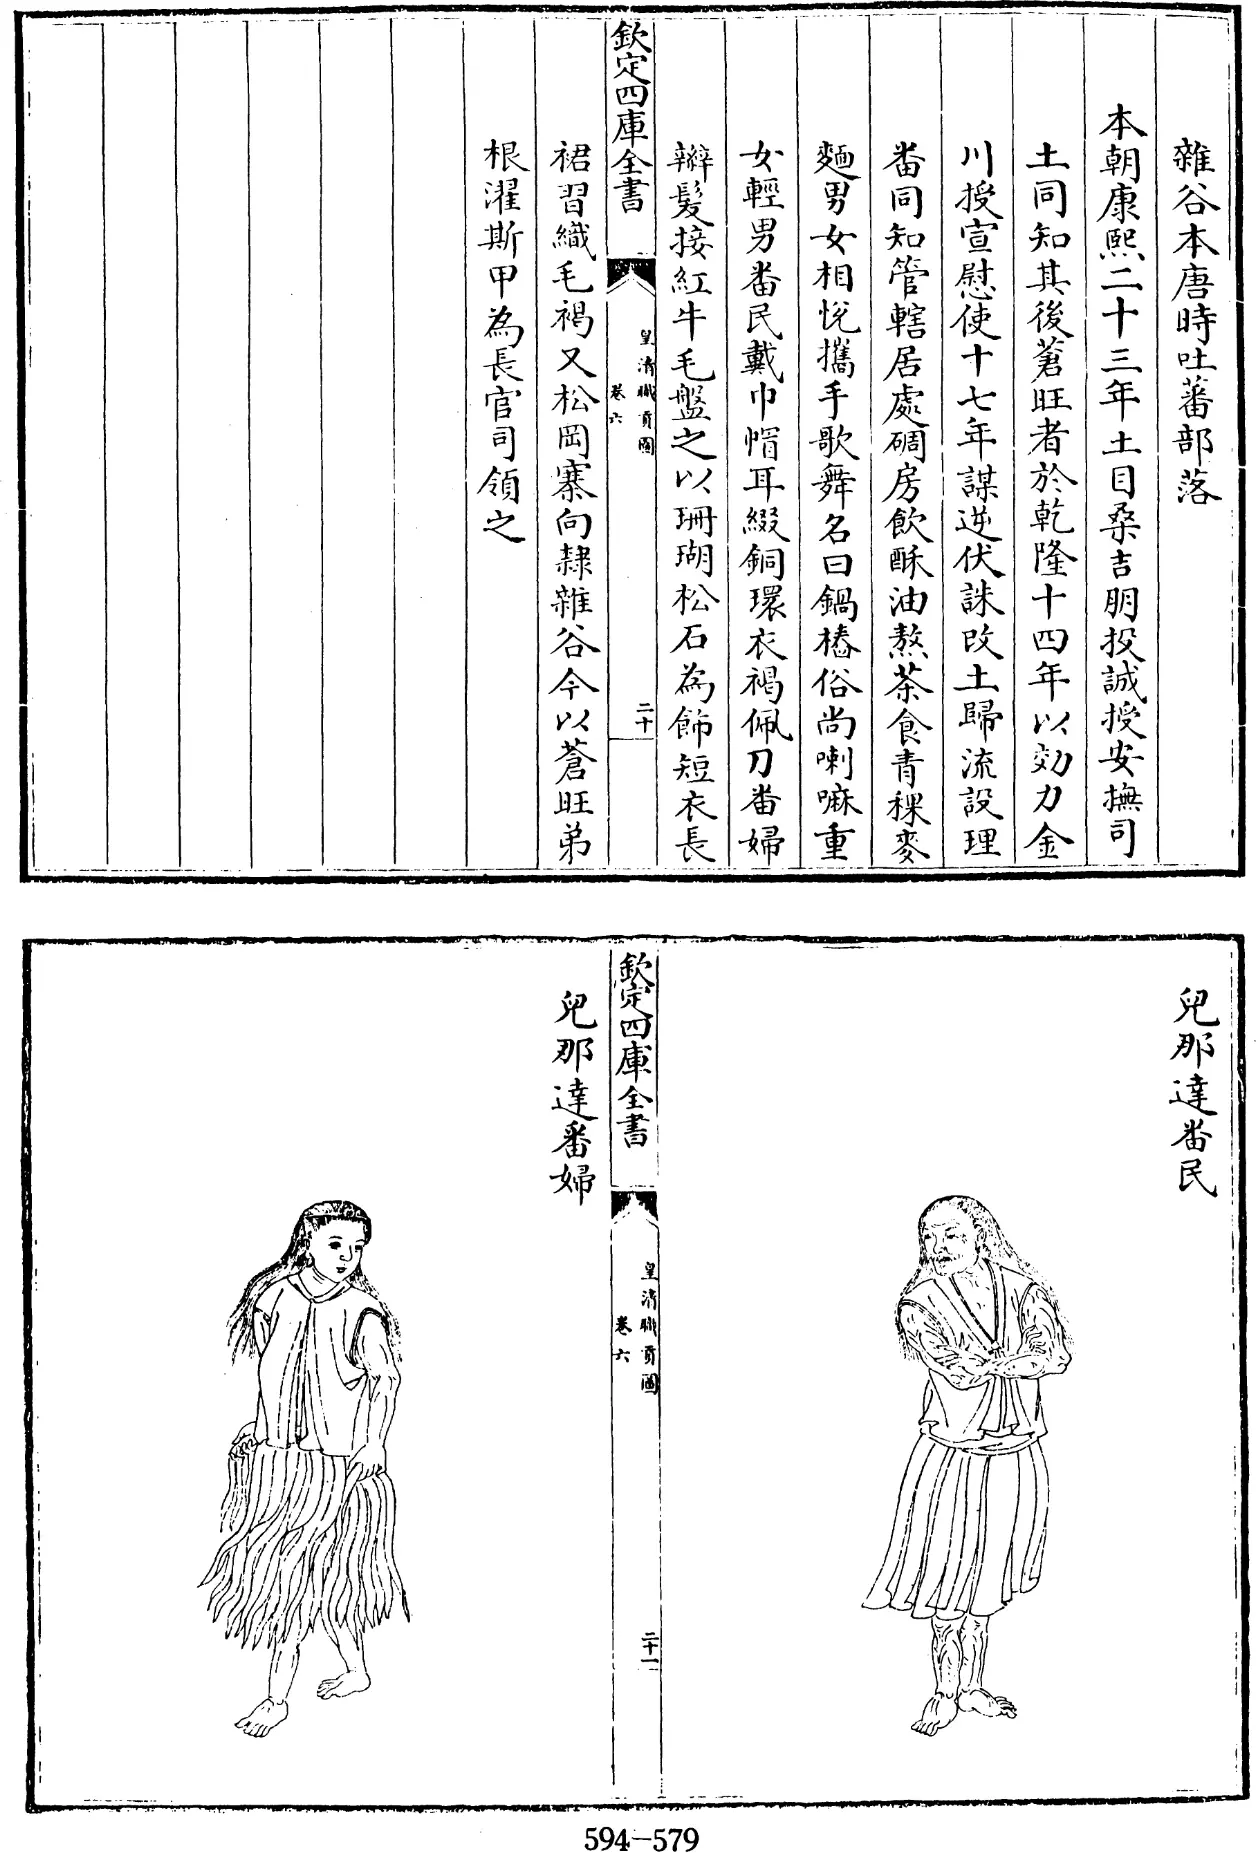 雜谷本唐時吐蕃部落
本朝康熙二十三年土目桑吉朋投誠授安撫司
土同知其後蒼旺者於乾隆十四年以効力金
川授宣慰使十七年謀逆伏誅改土歸流設理
番同知管轄居處碉房飲酥油熬茶食青稞麥
麵男女相悅攜手歌舞名曰鍋樁俗尚喇嘛重
女輕男番民戴巾帽耳綴銅環衣褐佩刀番婦
辮髮接紅牛毛盤之以珊瑚松石為飾短衣長
欽定四庫全書
皇清職貢圖
卷六
二十
裙習織毛褐又松岡寨向隸雜谷今以蒼旺弟
根濯斯甲為長官司領之
兒那達番民
欽定四庫全書
皇清職貢圖
卷六
二十一
兒那達番婦
594-579